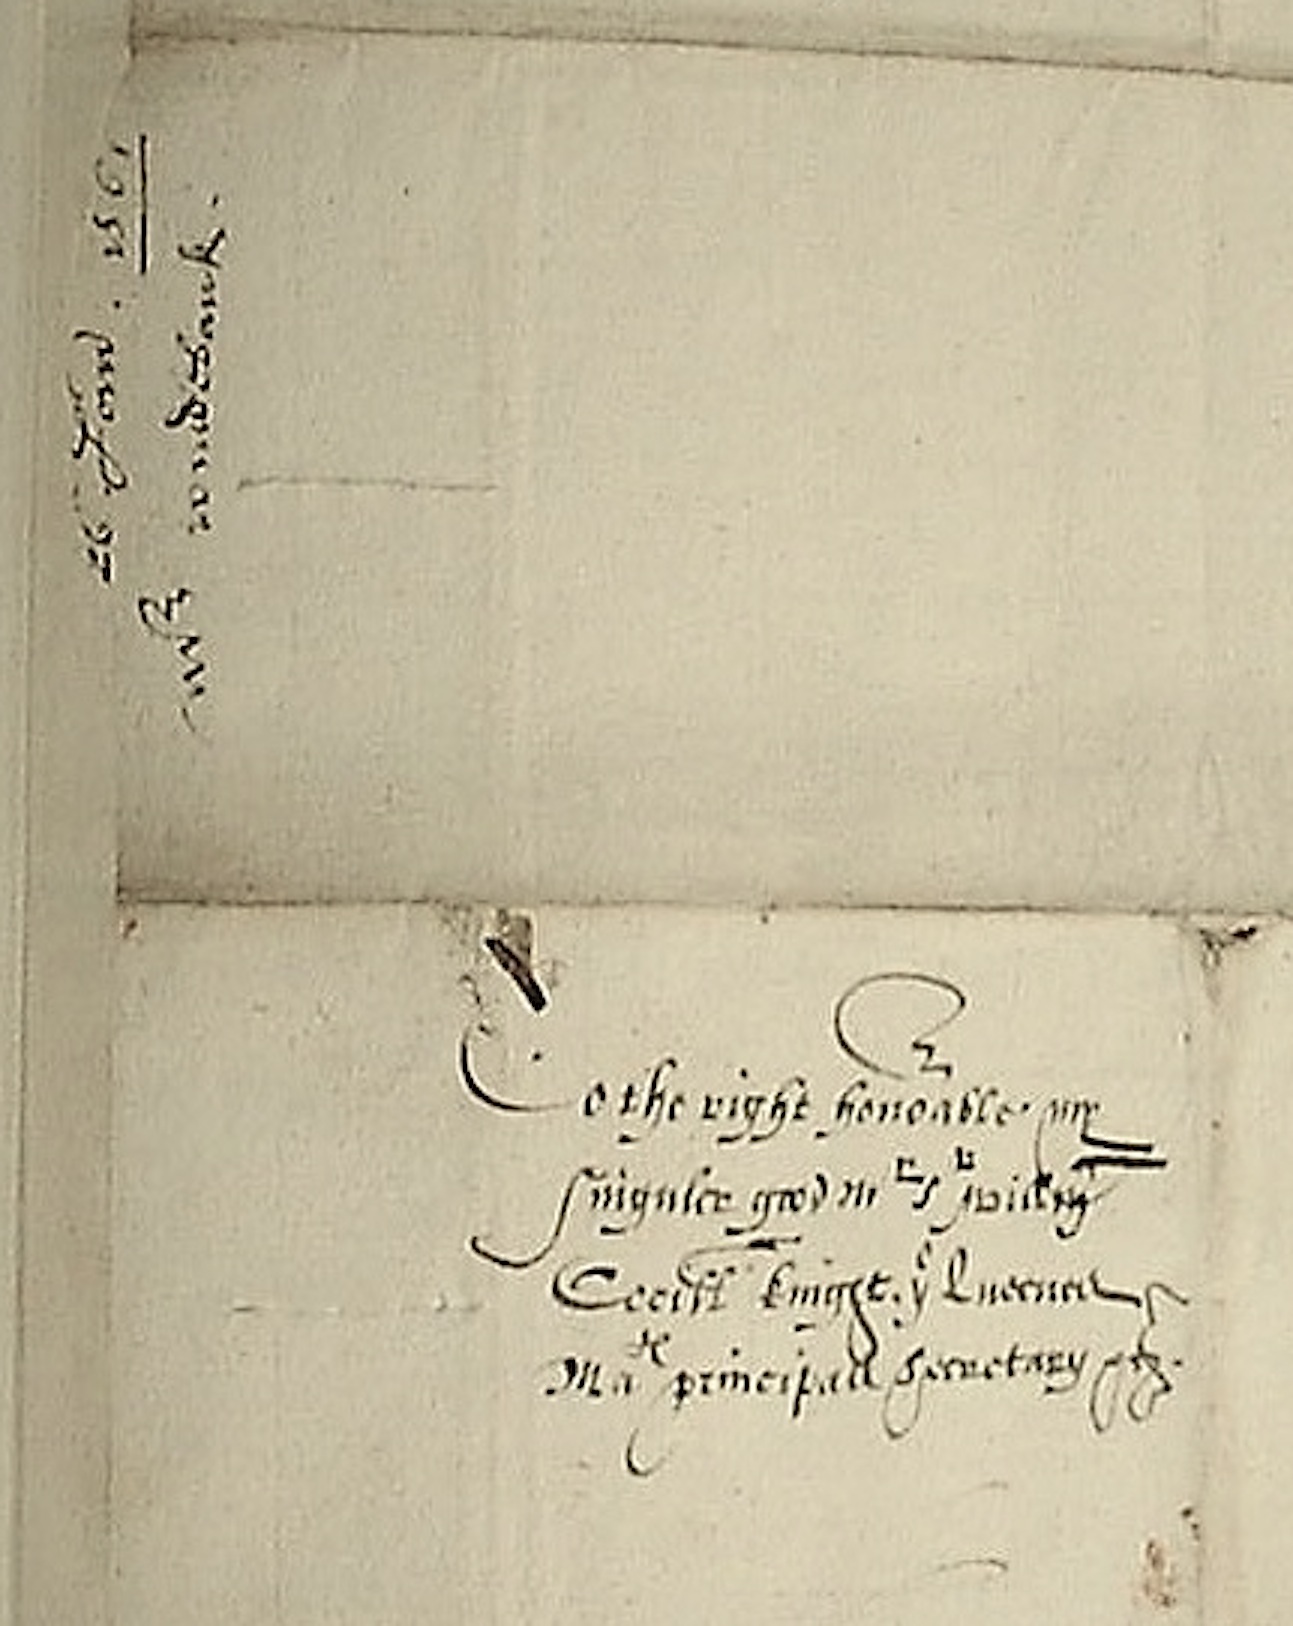 26 Januar. 1561
Mr wyndebank.
To the right honorable my
singuler good Mr Sr William
Cecill knight. ye Queenes
Mate principall Secretary etc.